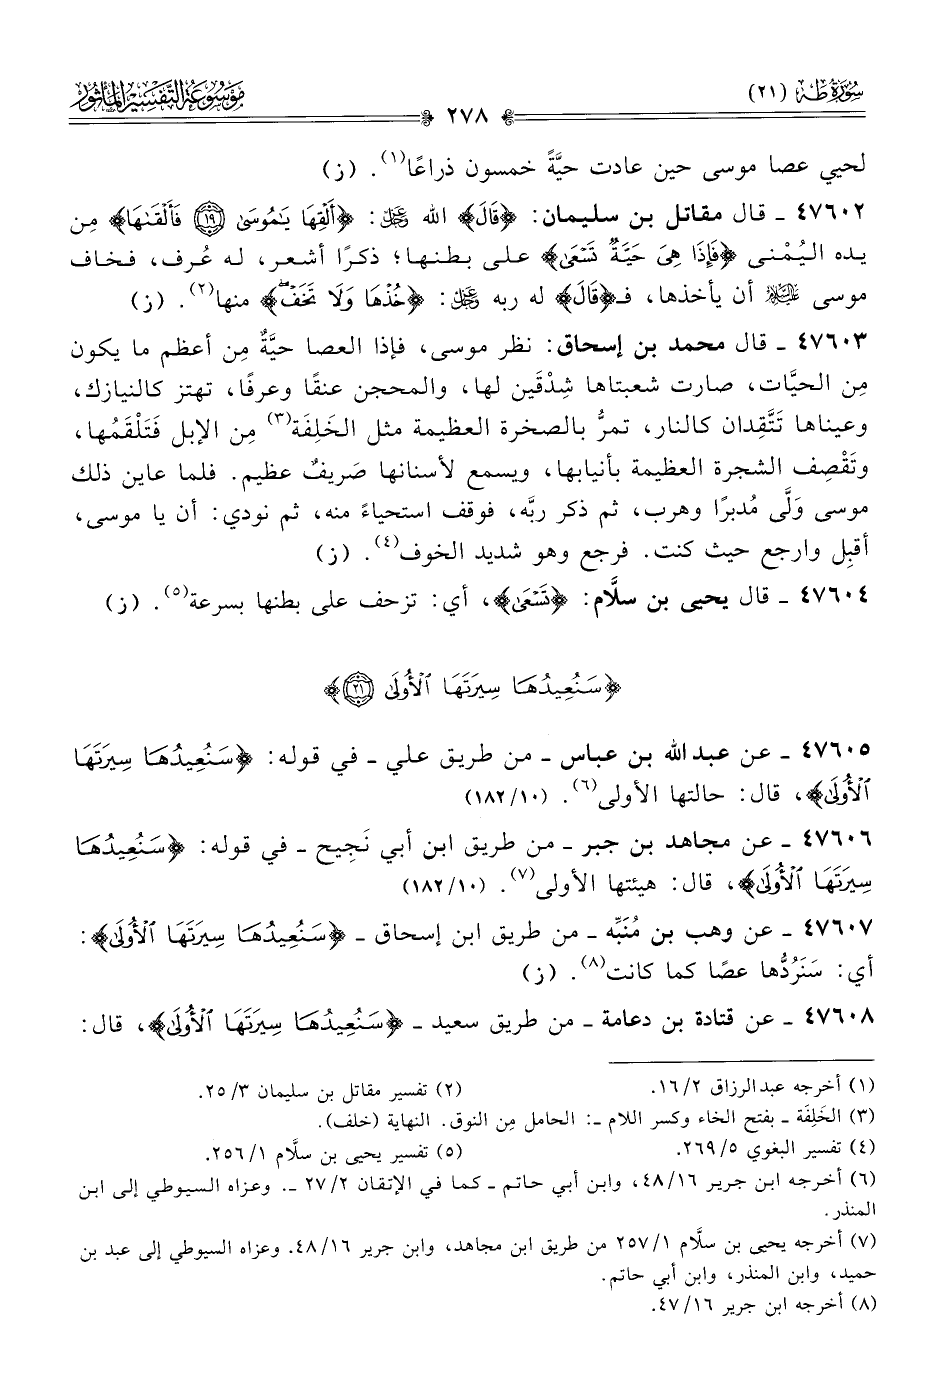 سُورَةُ طه (٢١)
٢٧٨
مَوْسُوعَةُ التَّفْسِيرِ المَأْثُورِ
لحيي عصا موسى حين عادت حيَّةً خمسون ذراعًا(١). (ز)
٤٧٦٠٢ ـ قال مقاتل بن سليمان: ﴿قَالَ﴾ الله ﷿: ﴿أَلْقِهَا يَٰمُوسَىٰ ١٩ فَأَلْقَىٰهَا﴾ مِن
يده اليُمْنى ﴿فَإِذَا هِىَ حَيَّةٌ تَسْعَىٰ﴾ على بطنها؛ ذكرًا أشعر، له عُرف، فخاف
موسى ﵇ أن يأخذها، فـ﴿قَالَ﴾ له ربه ﷿: ﴿خُذْهَا وَلَا تَخَفْ﴾ منها(٢). (ز)
٤٧٦٠٣ ـ قال محمد بن إسحاق: نظر موسى، فإذا العصا حيَّةٌ مِن أعظم ما يكون
مِن الحيَّات، صارت شعبتاها شِدْقَين لها، والمحجن عنقًا وعرفًا، تهتز كالنيازك،
وعيناها تَتَّقِدان كالنار، تمرُّ بالصخرة العظيمة مثل الخَلِفَة(٣) مِن الإبل فَتَلْقَمُها،
وتَقْصِف الشجرة العظيمة بأنيابها، ويسمع لأسنانها صَريفٌ عظيم. فلما عاين ذلك
موسى وَلَّى مُدبرًا وهرب، ثم ذكر ربَّه، فوقف استحياءً منه، ثم نودي: أن يا موسى،
أقبِل وارجع حيث كنت. فرجع وهو شديد الخوف(٤). (ز)
٤٧٦٠٤ ـ قال يحيى بن سلَّام: ﴿تَسْعَىٰ﴾، أي: تزحف على بطنها بسرعة(٥). (ز)
﴿سَنُعِيدُهَا سِيرَتَهَا ٱلْأُولَىٰ ٢١﴾
٤٧٦٠٥ ـ عن عبد الله بن عباس ـ من طريق علي ـ في قوله: ﴿سَنُعِيدُهَا سِيرَتَهَا
ٱلْأُولَىٰ﴾، قال: حالتها الأولى(٦). (١٨٢/١٠)
٤٧٦٠٦ ـ عن مجاهد بن جبر ـ من طريق ابن أبي نَجِيح ـ في قوله: ﴿سَنُعِيدُهَا
سِيرَتَهَا ٱلْأُولَىٰ﴾، قال: هيئتها الأولى(٧). (١٨٢/١٠)
٤٧٦٠٧ ـ عن وهب بن مُنَبِّه ـ من طريق ابن إسحاق ـ ﴿سَنُعِيدُهَا سِيرَتَهَا ٱلْأُولَىٰ﴾:
أي: سَنَرُدُّها عصًا كما كانت(٨). (ز)
٤٧٦٠٨ ـ عن قتادة بن دعامة ـ من طريق سعيد ـ ﴿سَنُعِيدُهَا سِيرَتَهَا ٱلْأُولَىٰ﴾، قال:
(١) أخرجه عبدالرزاق ١٦/٢. (٢) تفسير مقاتل بن سليمان ٢٥/٣.
(٣) الخَلِفَة ـ بفتح الخاء وكسر اللام ـ: الحامل مِن النوق. النهاية (خلف).
(٤) تفسير البغوي ٢٦٩/٥. (٥) تفسير يحيى بن سلَّام ٢٥٦/١.
(٦) أخرجه ابن جرير ٤٨/١٦، وابن أبي حاتم ـ كما في الإتقان ٢٧/٢ ـ. وعزاه السيوطي إلى ابن
المنذر.
(٧) أخرجه يحيى بن سلَّام ٢٥٧/١ من طريق ابن مجاهد، وابن جرير ٤٨/١٦. وعزاه السيوطي إلى عبد بن
حميد، وابن المنذر، وابن أبي حاتم.
(٨) أخرجه ابن جرير ٤٧/١٦.